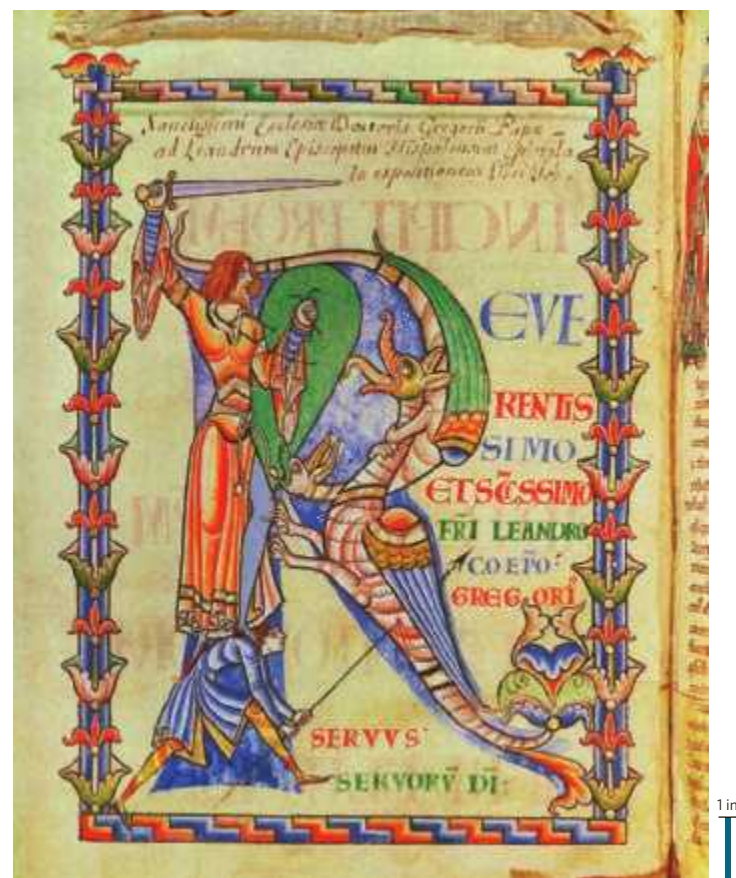 Sanctissimi Ecclesiae Doctoris Gregorii Papae
ad Leandrum Episcopum Hispalensem
In expositionem
R
EVE
RENTIS
SIMO
ET SC̄ISSIMO
FR̄I LEANDRO
COEP̄O
GREGORI
SERVVS
SERVORV̄ DI:
1 in